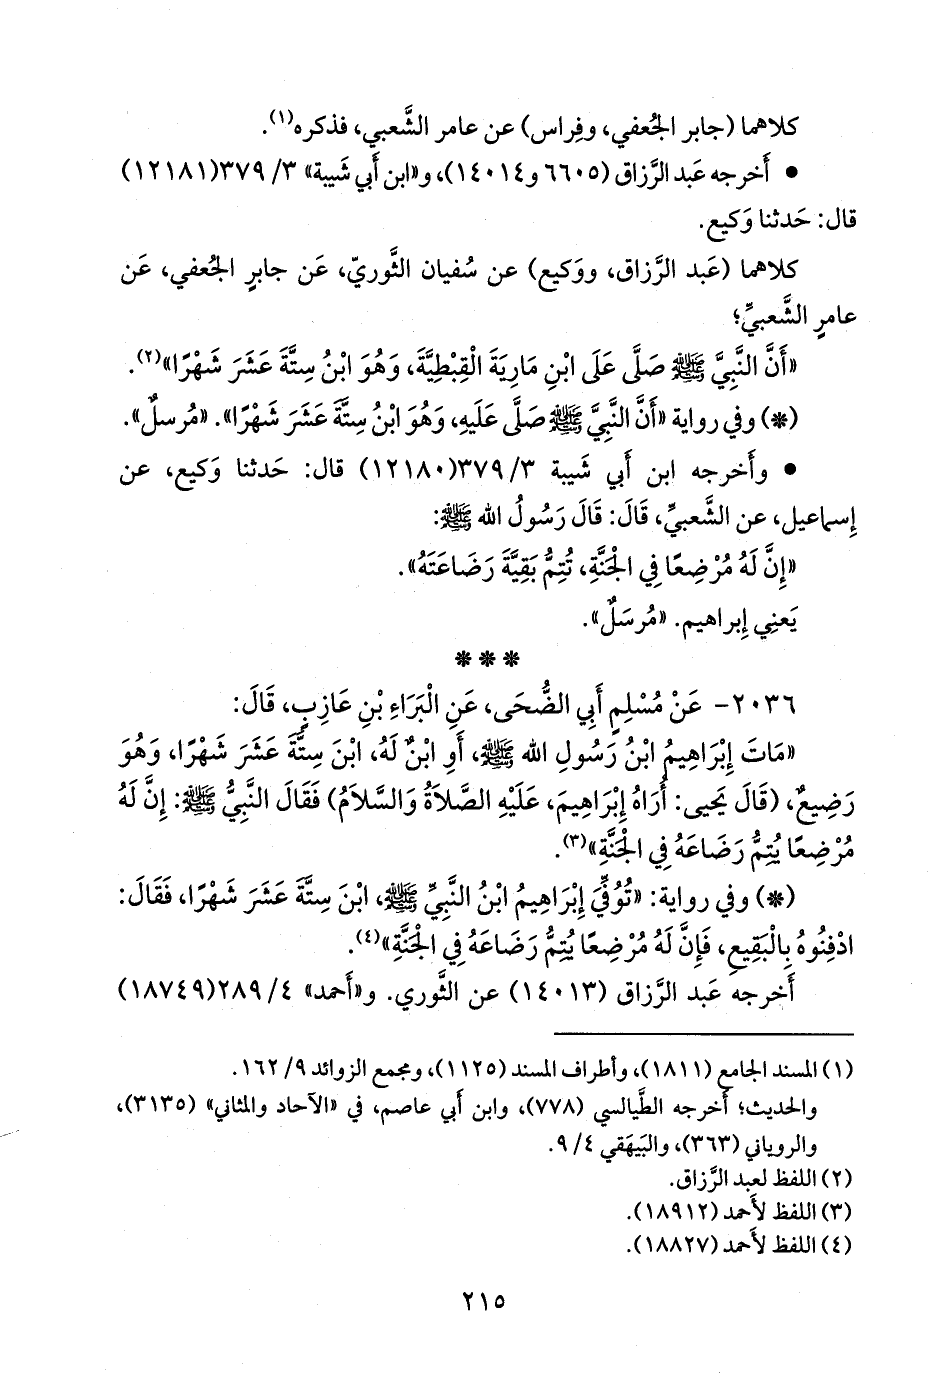 كلاهما (جابر الجُعفي، وفِراس) عن عامر الشَّعبي، فذكره(١).
• أَخرجه عَبد الرَّزاق (٦٦٠٥ و١٤٠١٤)، و«ابن أَبي شَيبة» ٣/ ٣٧٩(١٢١٨١)
قال: حَدثنا وَكيع.
كلاهما (عَبد الرَّزاق، ووَكيع) عن سُفيان الثَّوريّ، عَن جابرٍ الجُعفي، عَن
عامرٍ الشَّعبيِّ؛
«أَنَّ النَّبِيَّ ﷺ صَلَّى عَلَى ابْنِ مَارِيَةَ الْقِبْطِيَّةَ، وَهُوَ ابْنُ سِتَّةَ عَشَرَ شَهْرًا»(٢).
(*) وفي رواية «أَنَّ النَّبِيَّ ﷺ صَلَّى عَلَيهِ، وَهُوَ ابْنُ سِتَّةَ عَشَرَ شَهْرًا». «مُرسلٌ».
• وأَخرجه ابن أَبي شَيبة ٣/ ٣٧٩(١٢١٨٠) قال: حَدثنا وَكيع، عن
إِسماعيل، عن الشَّعبيِّ، قَالَ: قَالَ رَسُولُ الله ﷺ:
«إِنَّ لَهُ مُرْضِعًا فِي الْجَنَّةِ، تُتِمُّ بَقِيَّةَ رَضَاعَتَهُ».
يَعنِي إِبراهيم. «مُرسَلٌ».
* * *
٢٠٣٦- عَنْ مُسْلِمٍ أَبِي الضُّحَى، عَنِ الْبَرَاءِ بْنِ عَازِبٍ، قَالَ:
«مَاتَ إِبْرَاهِيمُ ابْنُ رَسُولِ الله ﷺ، أَوِ ابْنٌ لَهُ، ابْنَ سِتَّةَ عَشَرَ شَهْرًا، وَهُوَ
رَضِيعٌ، (قَالَ يَحيى: أُرَاهُ إِبْرَاهِيمَ، عَلَيْهِ الصَّلاَةُ وَالسَّلاَمُ) فَقَالَ النَّبِيُّ ﷺ: إِنَّ لَهُ
مُرْضِعًا يُتِمُّ رَضَاعَهُ فِي الْجَنَّةِ»(٣).
(*) وفي رواية: «تُوُفِّيَ إِبْرَاهِيمُ ابْنُ النَّبِيِّ ﷺ، ابْنَ سِتَّةَ عَشَرَ شَهْرًا، فَقَالَ:
ادْفِنُوهُ بِالْبَقِيعِ، فَإِنَّ لَهُ مُرْضِعًا يُتِمُّ رَضَاعَهُ فِي الْجَنَّةِ»(٤).
أَخرجه عَبد الرَّزاق (١٤٠١٣) عن الثَّوري. و«أَحمد» ٤/ ٢٨٩(١٨٧٤٩)
(١) المسند الجامع (١٨١١)، وأطراف المسند (١١٢٥)، ومجمع الزوائد ٩/ ١٦٢.
والحديث؛ أَخرجه الطَّيالسي (٧٧٨)، وابن أبي عاصم، في «الآحاد والمثاني» (٣١٣٥)،
والروياني (٣٦٣)، والبَيهَقي ٤/ ٩.
(٢) اللفظ لعبد الرَّزاق.
(٣) اللفظ لأَحمد (١٨٩١٢).
(٤) اللفظ لأَحمد (١٨٨٢٧).
٢١٥